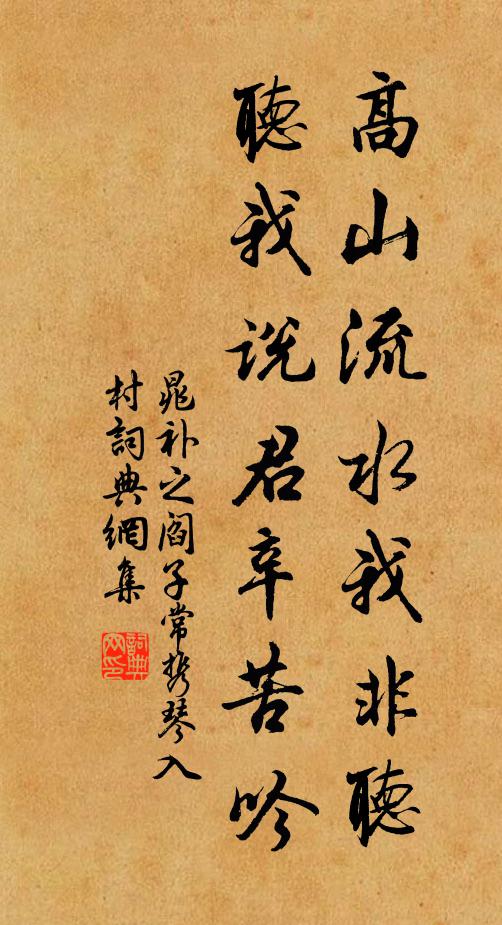 高山流水我非聽
聽我説君辛苦吟
晁补之阎子常携琴入
村詞典網集
詞典网印